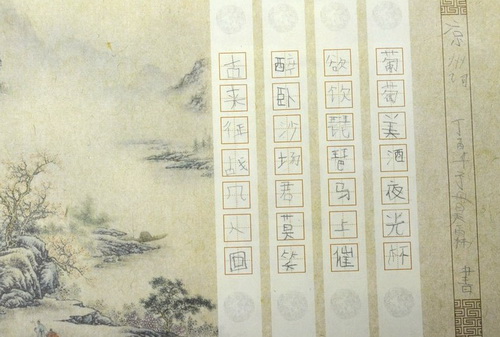 凉州词
丁酉年 书
葡萄美酒夜光杯
欲饮琵琶马上催
醉卧沙场君莫笑
古来征战 人回